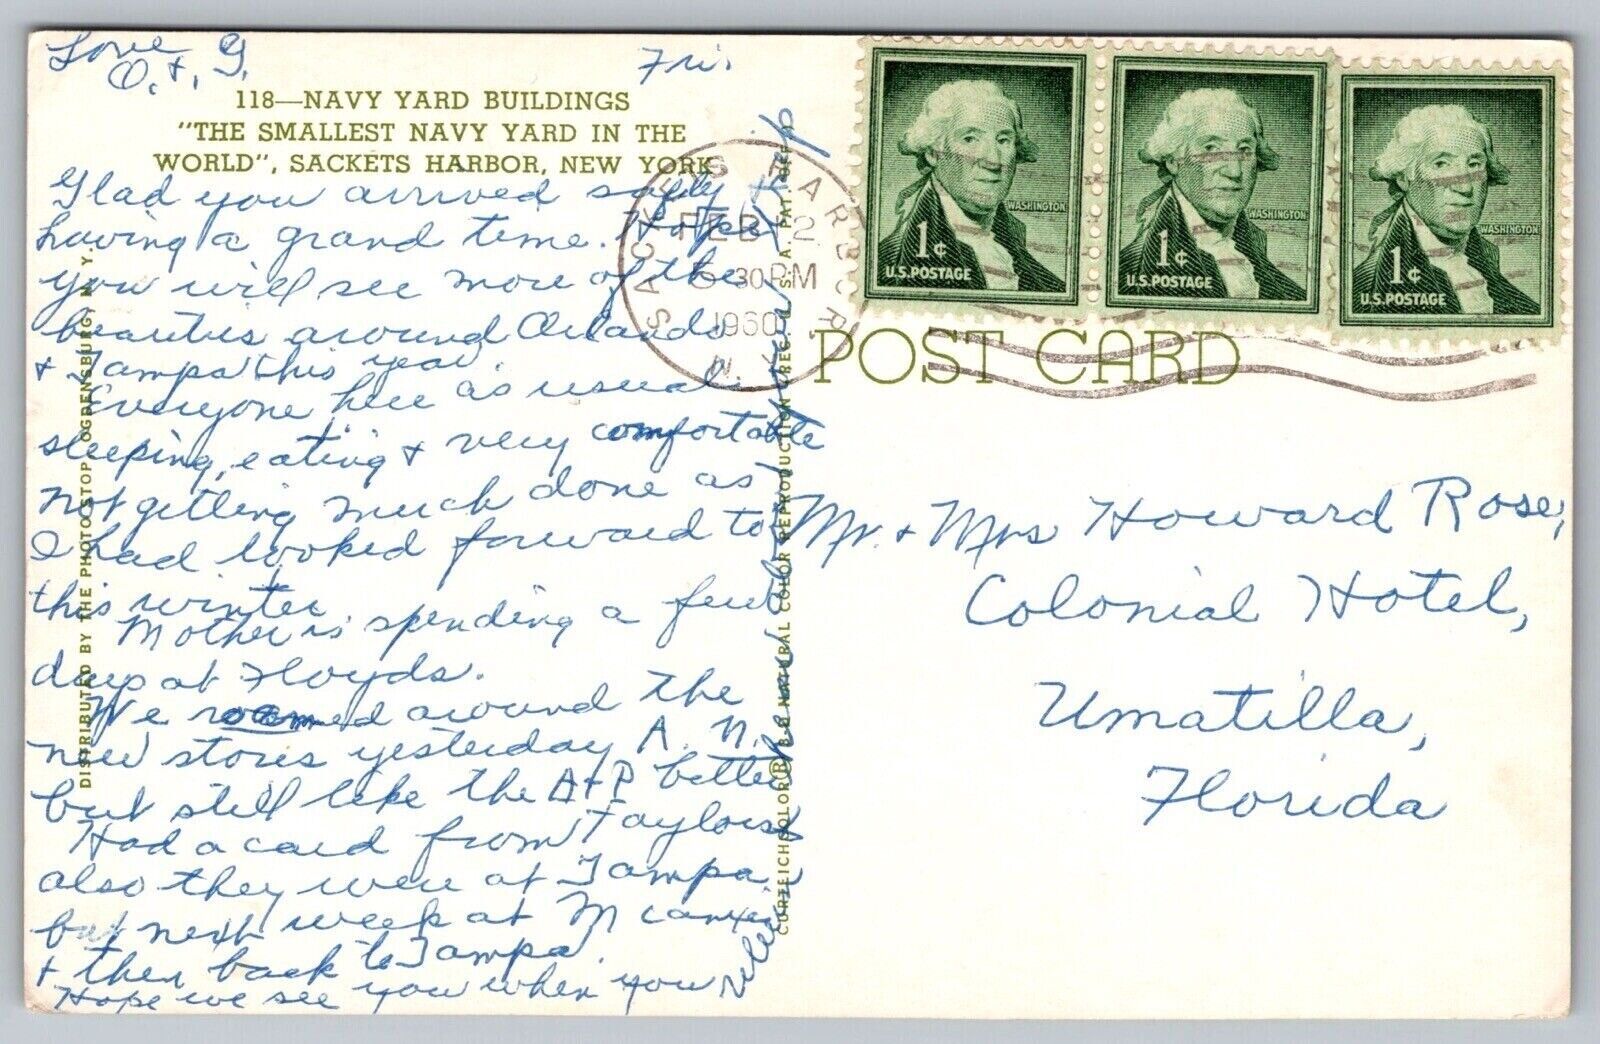 Love
O. & G.
Fri.
118—NAVY YARD BUILDINGS
"THE SMALLEST NAVY YARD IN THE
WORLD", SACKETS HARBOR, NEW YORK
Glad you arrived safely &
having a grand time. Hope
you will see more of the
beauties around Orlando
& Tampa this year.
Everyone here as usual
sleeping, eating & very comfortable
Not getting much done as
I had looked forward to
this winter.
Mother is spending a few
days at Floyds.
We roamed around the
new stores yesterday A. N.
but still like the A&P better
Had a card from Taylors
also they were at Tampa
but next week at M
& then back to Tampa.
Hope we see you when you
DISTRIBUTED BY THE PHOTO STOP, OGDENSBURG, N. Y.
CURTEICHCOLOR® 3-D NATURAL COLOR REPRODUCTION (REG. U. S. A. PAT. OFF.)
SACKETS HARBOR
FEB 12
30 PM
1960
N. Y.
WASHINGTON
1¢
U.S. POSTAGE
WASHINGTON
1¢
U.S. POSTAGE
WASHINGTON
1¢
U.S. POSTAGE
POST CARD
Mr. & Mrs Howard Rose,
Colonial Hotel,
Umatilla,
Florida